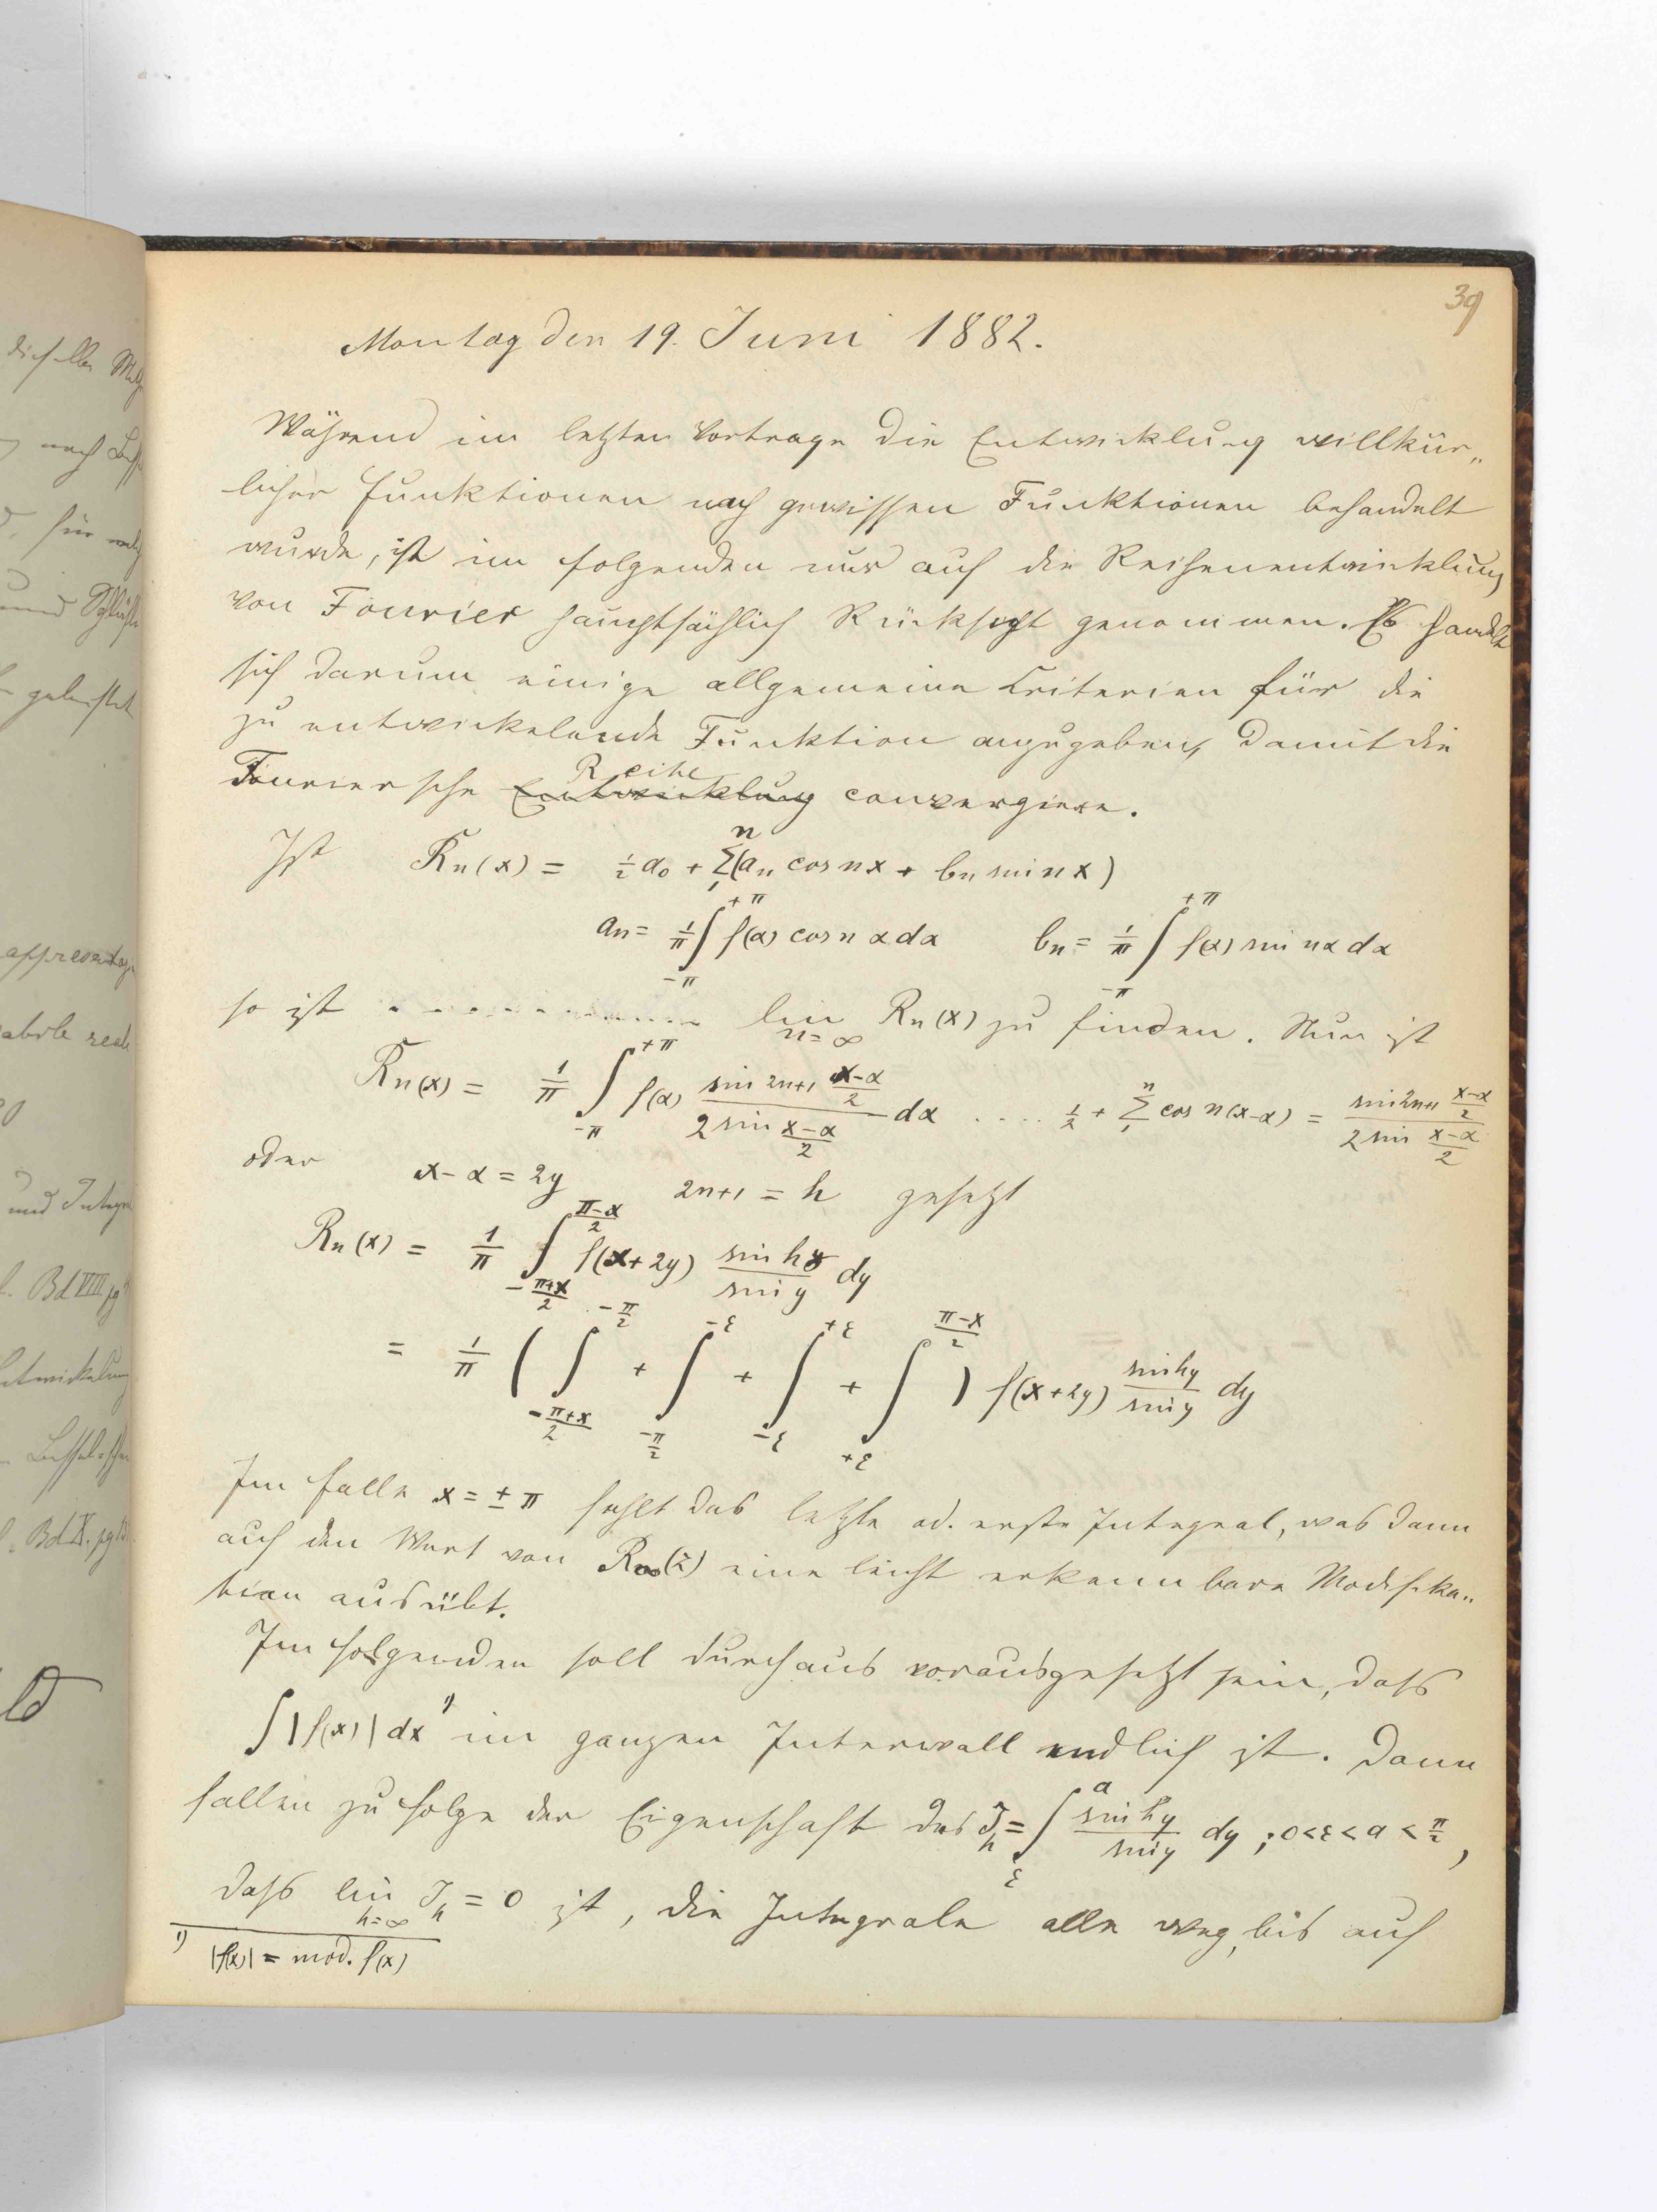 39
Montag den 19. Juni 1882.
Während im letzten Vortrage die Entwicklung willkür„
licher Funktionen nach gewissen Funktionen behandelt
wurde, ist im folgenden nur auf die Reihenentwicklung
von Fourier hauptsächlich Rücksicht genommen. Es handelt
sich darum einige allgemeine Criterien für die
zu entwickelnde Funktion anzugeben, damit die
Fouriersche Reihe convergiere.
Ist Rn(x) = ½ a₀ + Σ₁ⁿ (an cos nx + bn sin nx)
an = 1/π ∫_{-π}^{+π} f(α) cos nα dα bn = 1/π ∫_{-π}^{+π} f(α) sin nα dα
so ist lim_{n=∞} Rn(x) zu finden. Nun ist
Rn(x) = 1/π ∫_{-π}^{+π} f(α) (sin 2n+1 (x-α)/2)/(2 sin (x-α)/2) dα .... ½ + Σ₁ⁿ cos n(x-α) = (sin 2n+1 (x-α)/2)/(2 sin (x-α)/2)
oder x-α = 2y 2n+1 = h gesetzt
Rn(x) = 1/π ∫_{-(π+x)/2}^{(π-x)/2} f(x+2y) (sin hy)/(sin y) dy
= 1/π ( ∫_{-(π+x)/2}^{-π/2} + ∫_{-π/2}^{-ε} + ∫_{-ε}^{+ε} + ∫_{+ε}^{(π-x)/2} ) f(x+2y) (sin hy)/(sin y) dy
Im Falle x = ± π fehlt das letzte od. erste Integral, was dann
auf den Wert von R∞(z) eine leicht erkennbare Modifika„
tion ausübt.
Im folgenden soll durchaus vorausgesetzt sein, dass
∫|f(x)| dx ¹⁾ im ganzen Intervall endlich ist. Dann
fallen zu folge der Eigenschaft des J_h = ∫_ε^a (sin hy)/(sin y) dy ; 0<ε<a<π/2,
dass lim_{h=∞} J_h = 0 ist, die Integrale alle weg, bis auf
¹⁾ |f(x)| = mod. f(x)